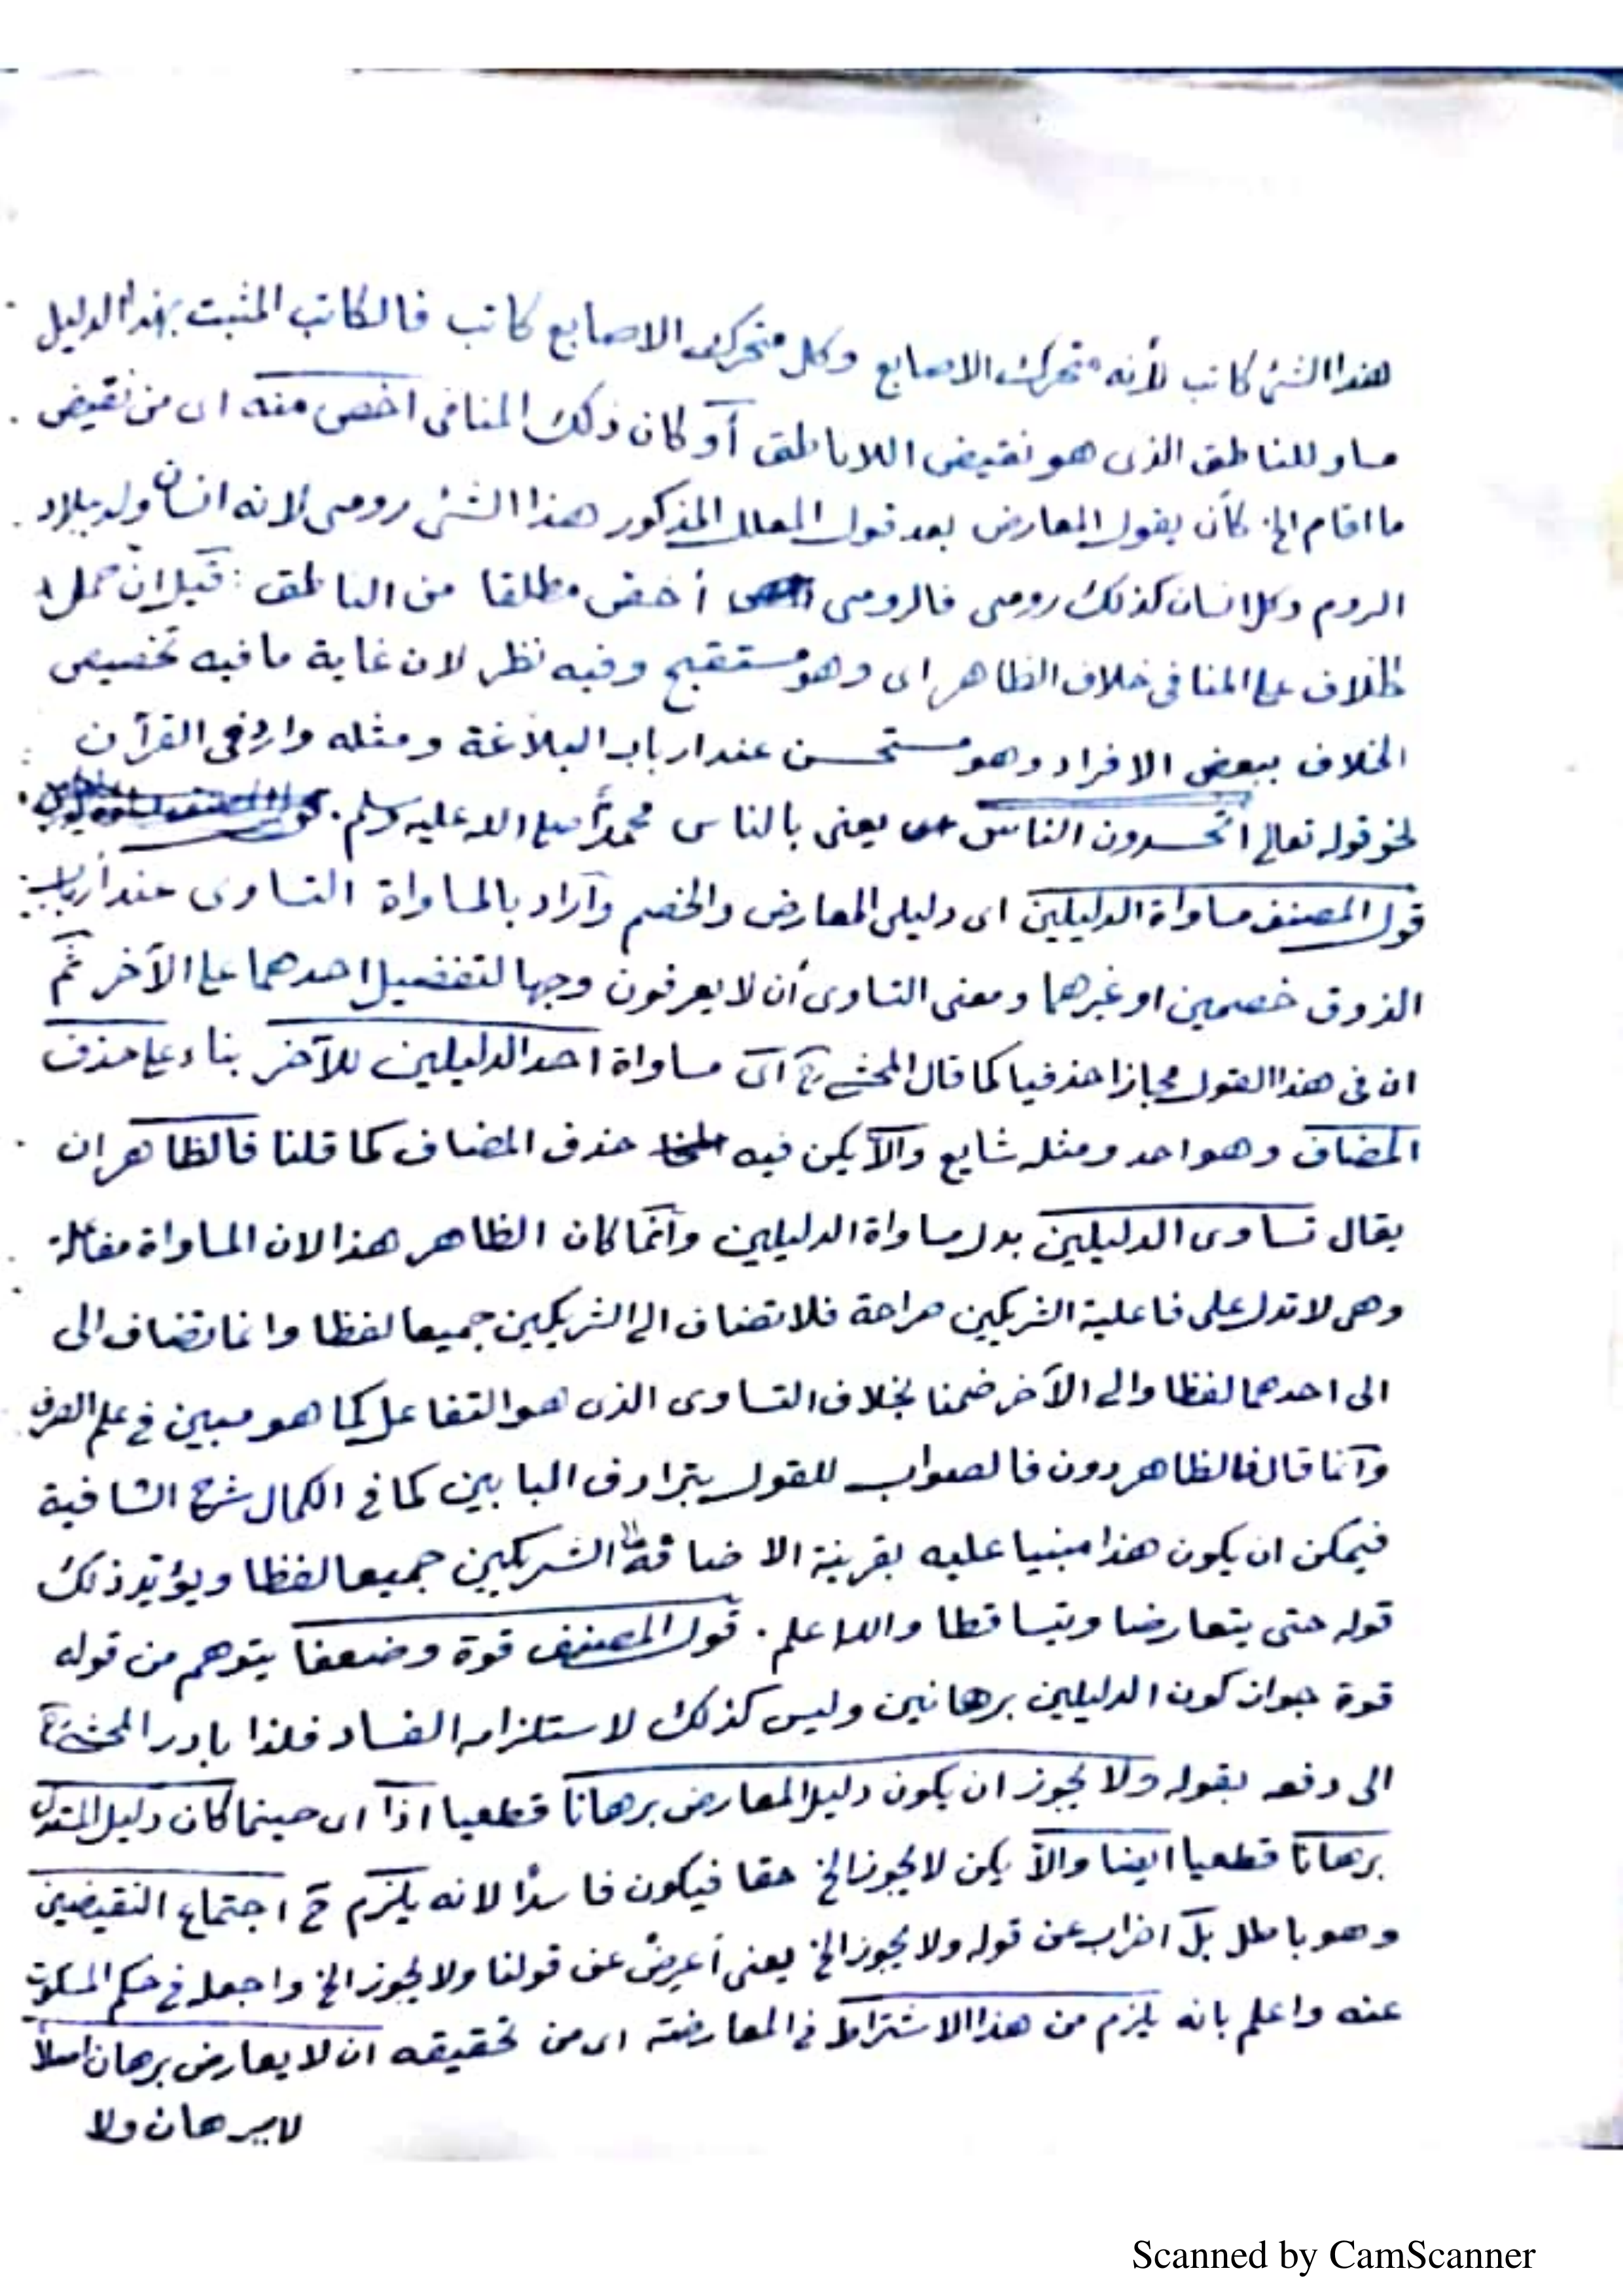 هذا الشئ كاتب لأنه متحرك الاصابع وكل متحرك الاصابع كاتب فالكاتب المثبت بهذا الدليل
مساو للناطق الذى هو نقيض اللاناطق أو كان ذلك المنافى اخص منه اى من نقيض
ما اقام الخ كأن يقول المعارض بعد قول المعلل المذكور هذا الشئ رومى لانه انسان ولد ببلاد
الروم وكل انسان كذلك رومى فالرومى أخص مطلقا من الناطق : قيل ان حمل
الخلاف على المنافى خلاف الظاهر اى وهو مستقبح وفيه نظر لان غاية ما فيه تخصيص
الخلاف ببعض الافراد وهو مستحسن عند ارباب البلاغة ومثله وارد فى القرآن
نحو قوله تعالى أتحسدون الناس يعنى بالناس محمدًا صلى الله عليه وسلم .
قول المصنف مساواة الدليلين اى دليلى المعارض والخصم وأراد بالمساواة التساوى عند أرباب
الذوق خصمين او غيرهما ومعنى التساوى أن لا يعرفون وجها لتفضيل احدهما على الآخر ثم
ان فى هذا القول مجازا حذفيا كما قال المحشى اى مساواة احد الدليلين للآخر بناء على حذف
المضاف وهو احد ومثله شايع والا يكن فيه حذف المضاف كما قلنا فالظاهر ان
يقال تساوى الدليلين بدل مساواة الدليلين وانما كان الظاهر هذا لان المساواة مفاعلة
وهى لا تدل على فاعلية الشريكين صراحة فلا تضاف الى الشريكين جميعا لفظا وانما تضاف الى
الى احدهما لفظا والى الآخر ضمنا بخلاف التساوى الذى هو التفاعل كما هو مبين فى علم الصرف
وانما قال فالظاهر دون فالصواب للقول بترادف البابين كما فى الكمال شرح الشافية
فيمكن ان يكون هذا مبنيا عليه بقرينة الاضافة الى الشريكين جميعا لفظا ويؤيد ذلك
قوله حتى يتعارضا ويتساقطا والله اعلم . قول المصنف قوة وضعفا يتوهم من قوله
قوة جواز كون الدليلين برهانين وليس كذلك لاستلزامه الفساد فلذا بادر المحشى
الى دفعه بقوله ولا يجوز ان يكون دليل المعارض برهانا قطعيا اذا اى حينما كان دليل المستدل
برهانا قطعيا ايضا والا يكن لا يجوز الخ حقا فيكون فاسدًا لانه يلزم ح اجتماع النقيضين
وهو باطل بل اضراب عن قوله ولا يجوز الخ يعنى أعرض عن قولنا ولا يجوز الخ واجعله فى حكم المسكوت
عنه واعلم بانه يلزم من هذا الاشتراط فى المعارضة اى من تحقيقه ان لا يعارض برهان اصلا
لا ببرهان ولا
Scanned by CamScanner